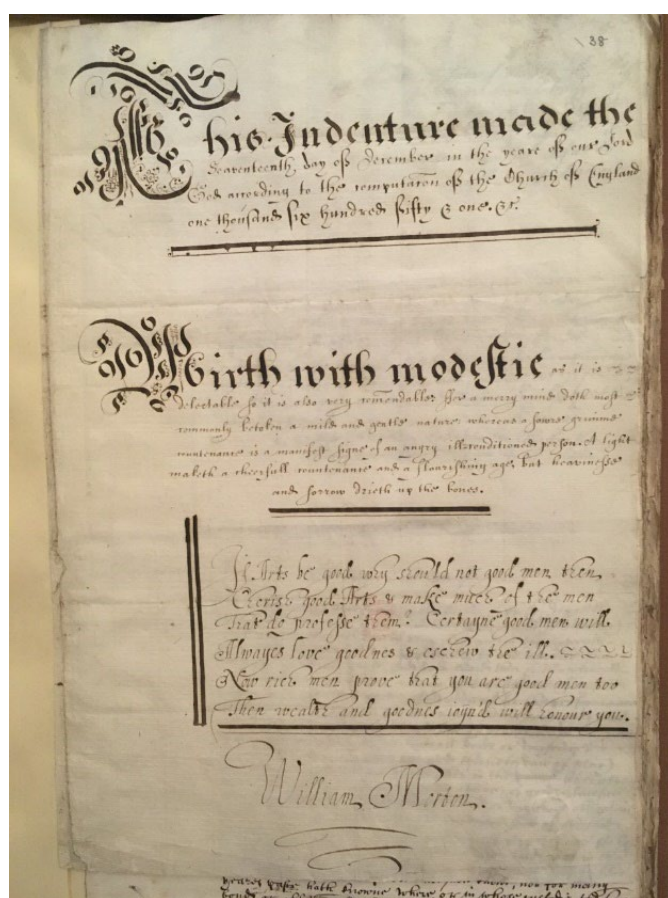 38
This Indenture made the
Seaventeenth day off December in the yeare off our Lord
God according to the computacōn off the Church off England
one thousand six hundred fifty & one. &c.
Mirth with modestie as it is
delectable so it is also very comēndable for a merry mind doth most
commonly betoken a mild and gentle nature whereas a sowre grimme
countenance is a manifest signe of an angry ill conditioned person. A light
maketh a cheerfull countenance and a flourishing age, but heavinesse
and sorrow drieth up the bones.
If Arts be good why should not good men then
Cherish good Arts & make much of the men
That do professe them? Certayne good men will
Allwayes love goodnes & eschew the ill.
Now rich men prove that you are good men too
Then wealth and goodnes ioynd will honour you.
William Merden.
yeares past hath knowne where or in, nor for many